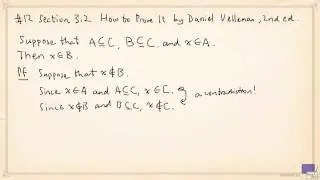 #12 Section 3.2 How to Prove It by Daniel Velleman, 2nd ed.
Suppose that A⊆C, B⊆C, and x∈A.
Then x∈B.
Pf Suppose that x∉B.
Since x∈A and A⊆C, x∈C.
a contradiction!
Since x∉B and B⊆C, x∉C.